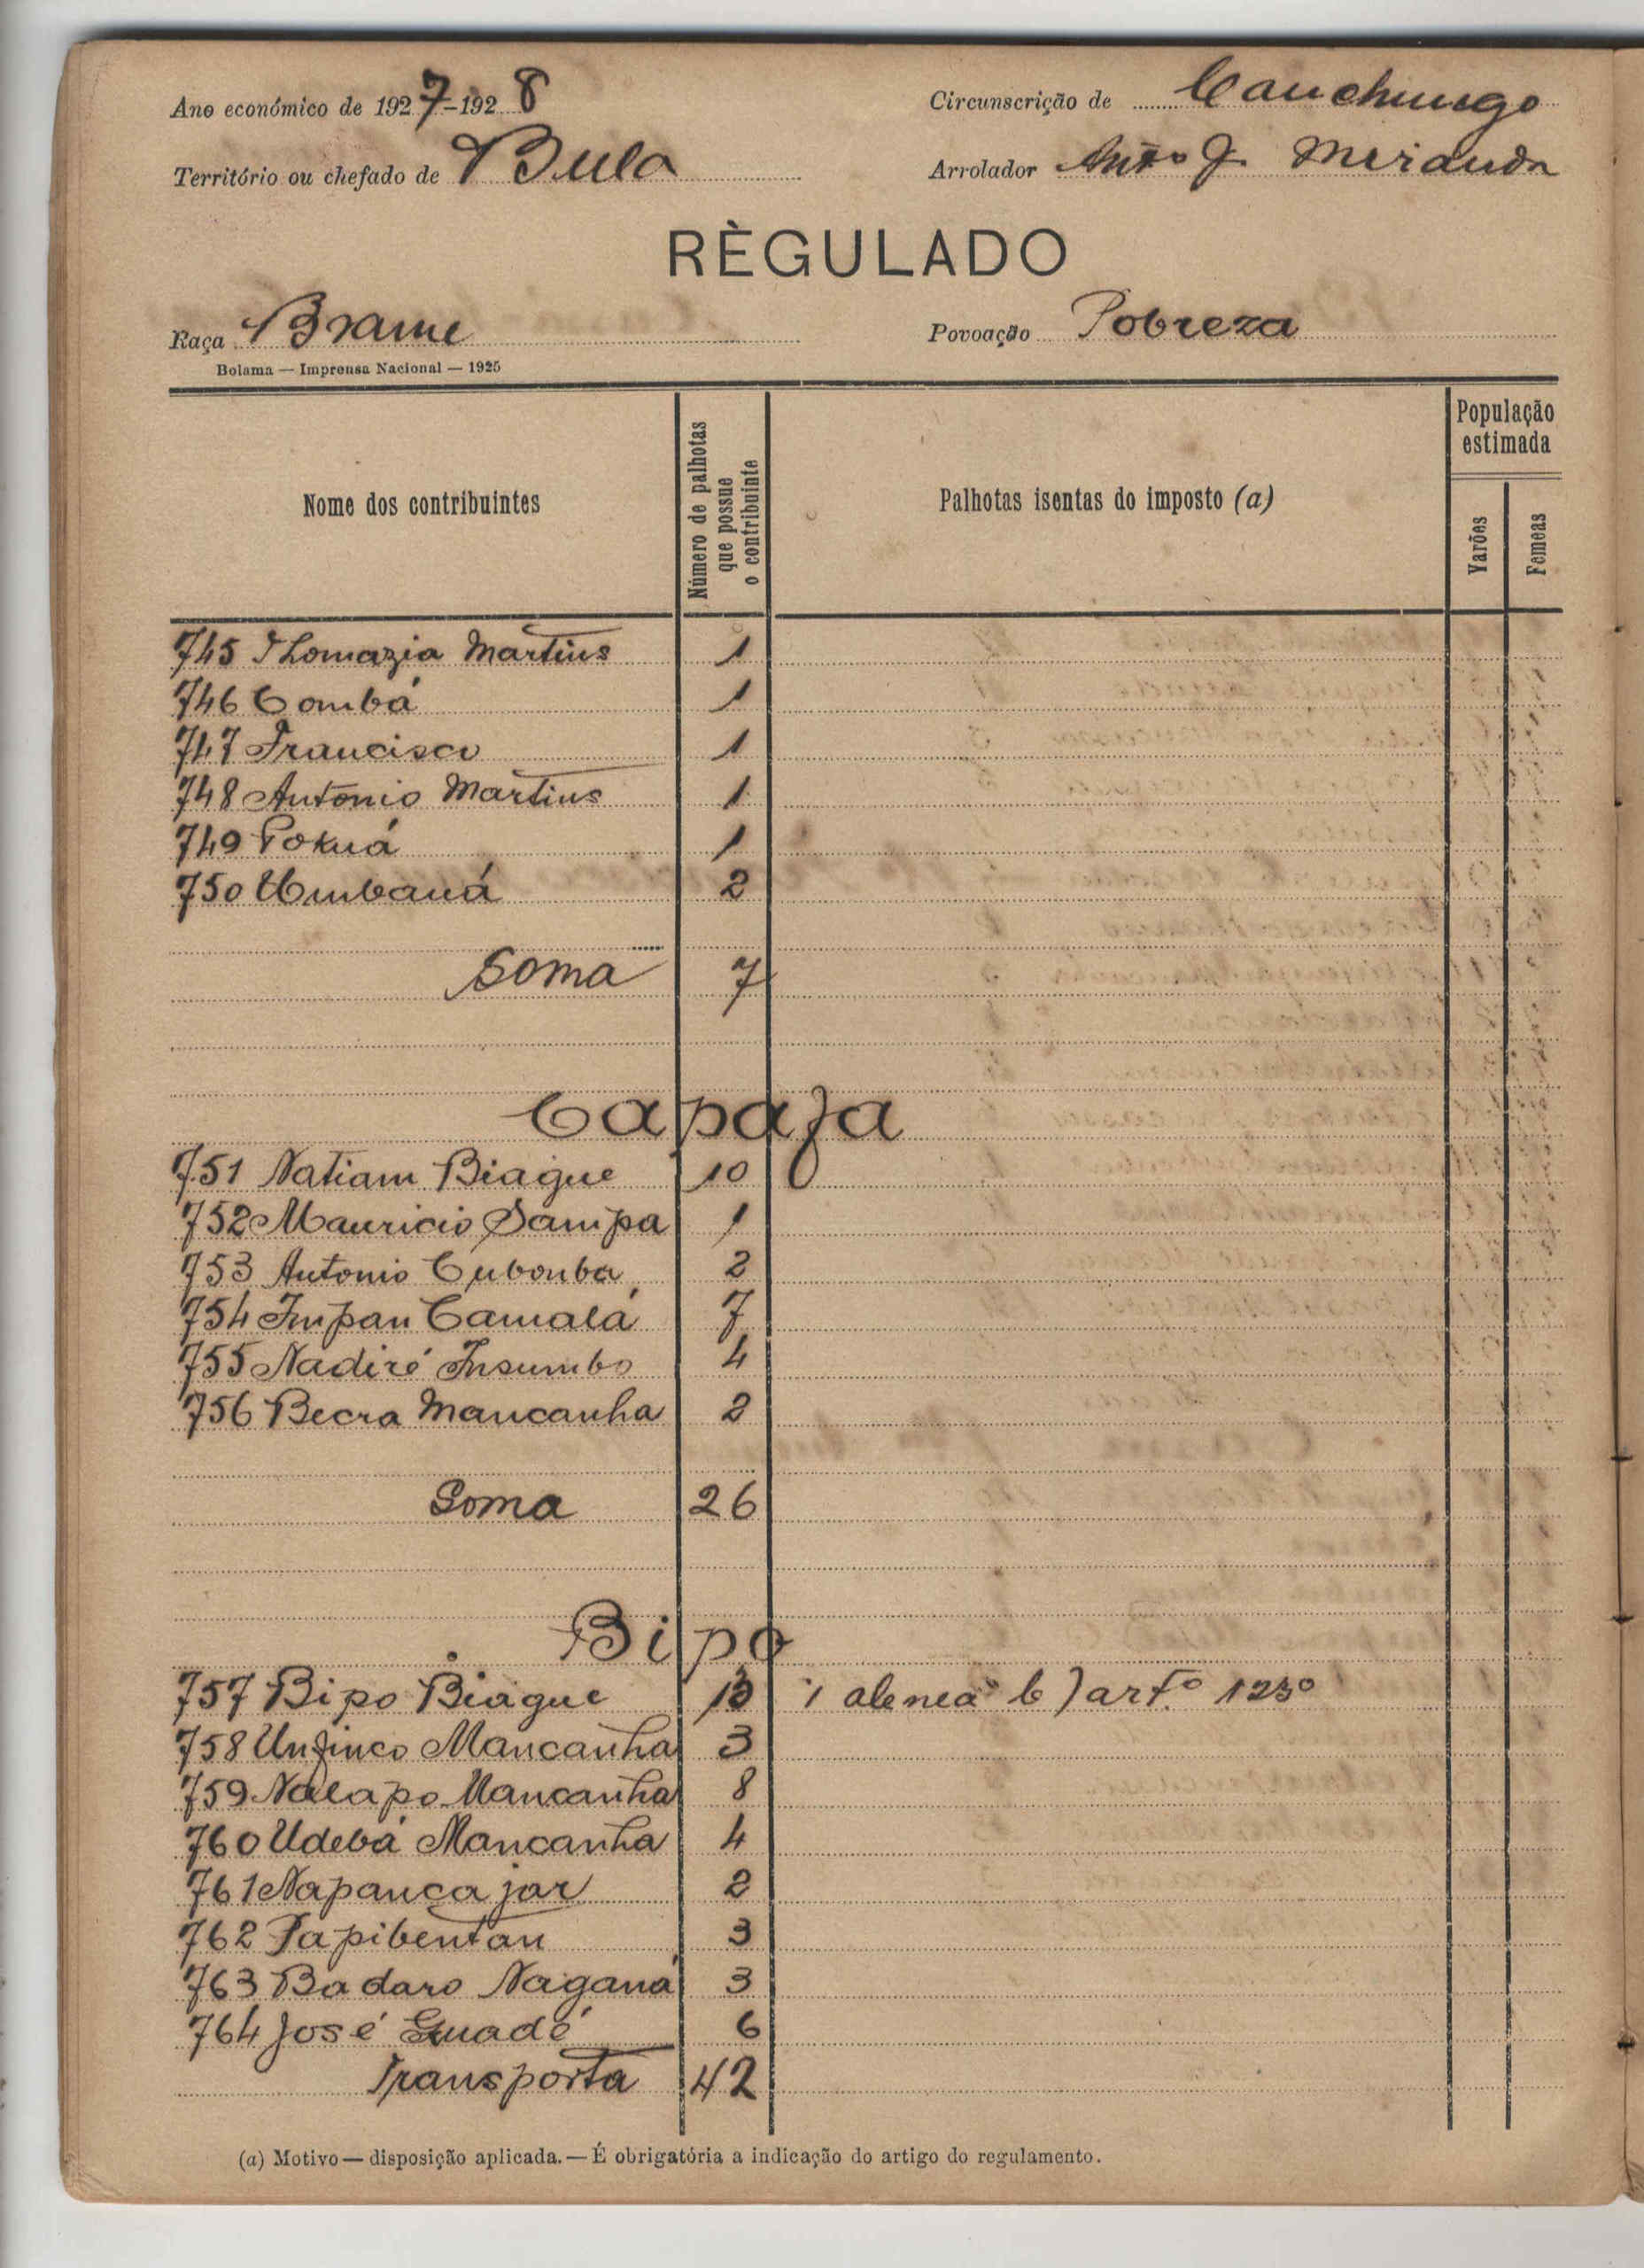 Ano económico de 1927-1928
Circunscrição de Canchungo
Território ou chefado de Bula
Arrolador Antº J. Miranda
RÈGULADO
Raça Brame
Povoação Pobreza
Bolama — Imprensa Nacional — 1925
Nome dos contribuintes
Número de palhotas que possue o contribuinte
Palhotas isentas do imposto (a)
População estimada
Varões
Femeas
745 Thomazia Martins 1
746 Combá 1
747 Francisco 1
748 Antonio Martins 1
749 Pokuá 1
750 Umbaná 2
Soma 7
Capafa
751 Natiam Biague 10
752 Mauricio Sampa 1
753 Antonio Cubonba 2
754 Impan Camalá 7
755 Nadiré Insumbo 4
756 Becra Mancanha 2
Soma 26
Bipo
757 Bipo Biague 13 1 alenea b) artº 123º
758 Unfinco Mancanha 3
759 Nalapo Mancanha 8
760 Udebá Mancanha 4
761 Napanca jar 2
762 Papibentan 3
763 Badaro Naganá 3
764 José Guadé 6
Transporta 42
(a) Motivo — disposição aplicada. — É obrigatória a indicação do artigo do regulamento.